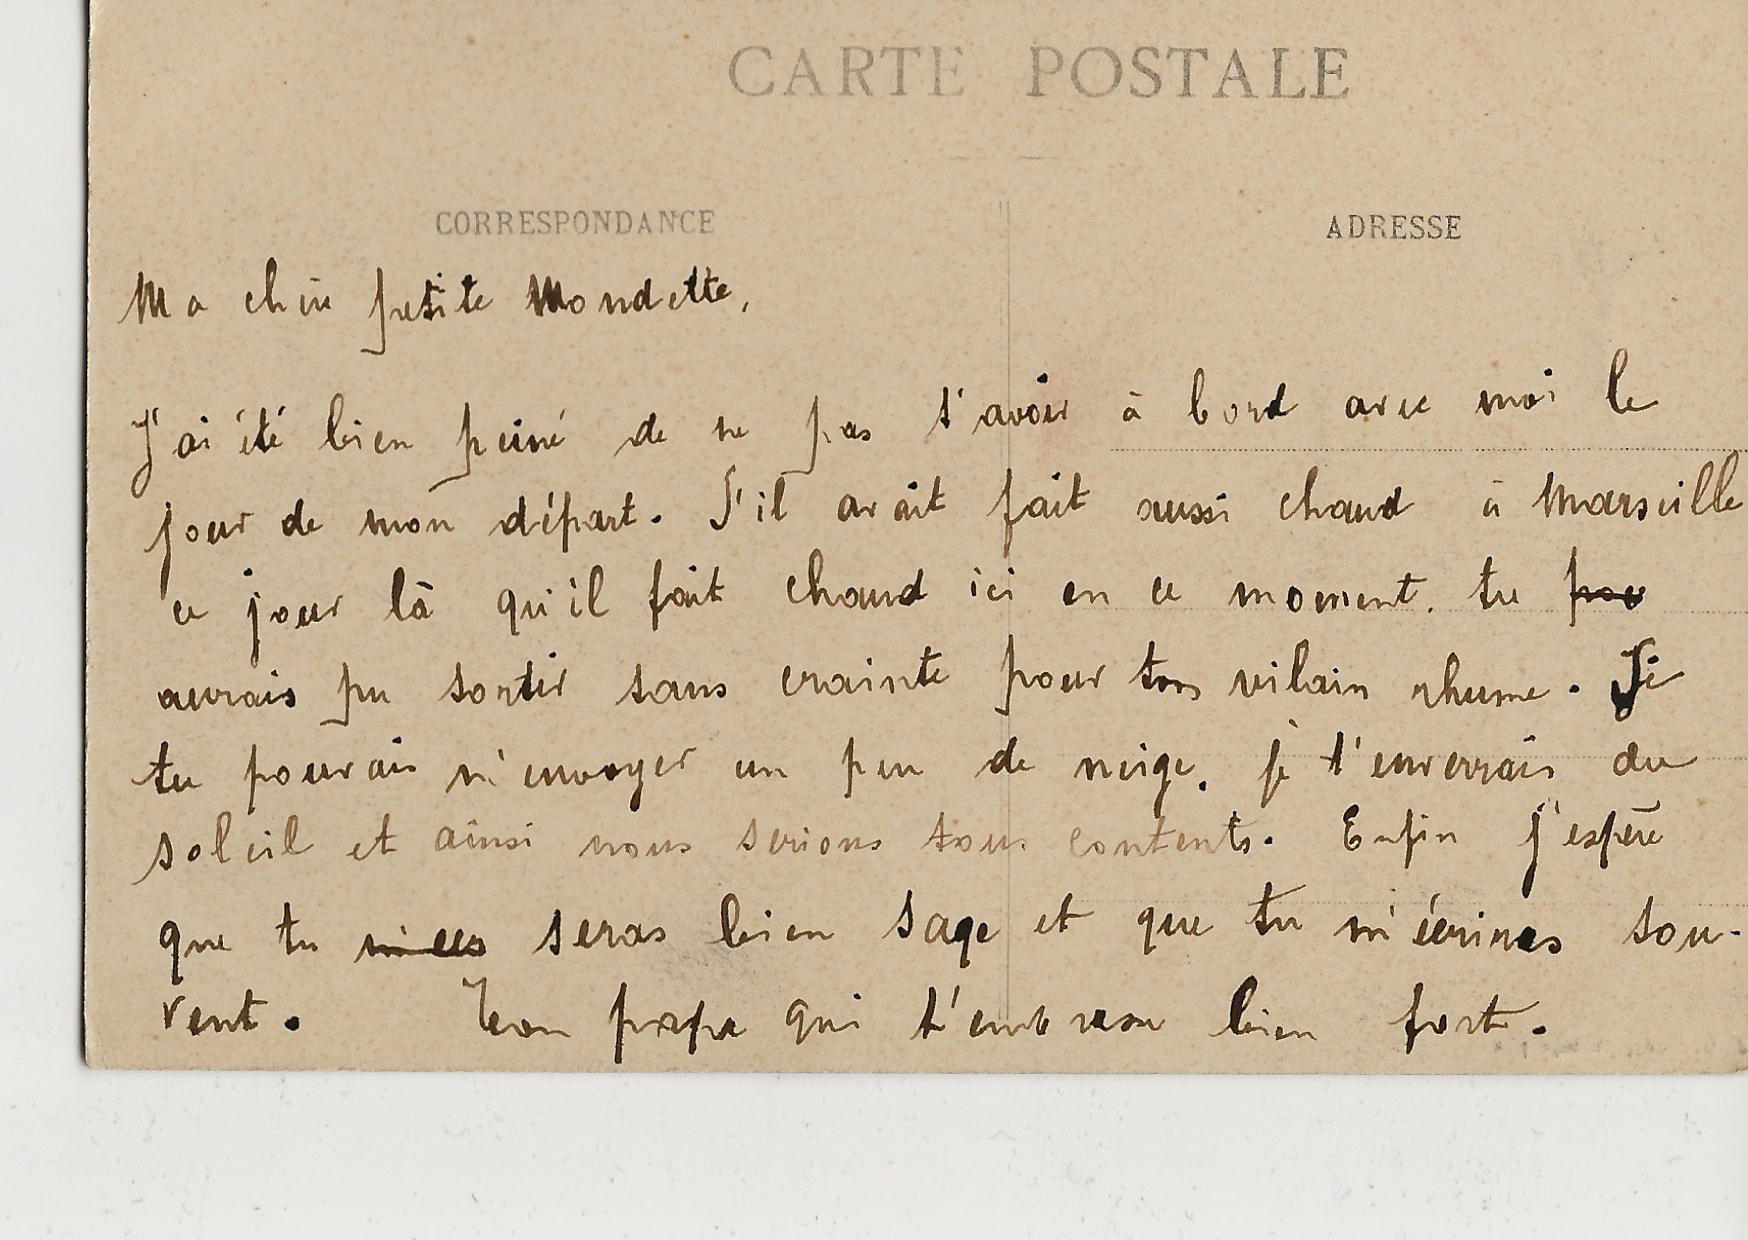 CARTE POSTALE
CORRESPONDANCE
ADRESSE
Ma chère petite Mondette,
J'ai été bien peiné de ne pas t'avoir à bord avec moi le
jour de mon départ. S'il avait fait aussi chaud à Marseille
ce jour là qu'il fait chaud ici en ce moment, tu
aurais pu sortir sans crainte pour ton vilain rhume. Si
tu pouvais m'envoyer un peu de neige, je t'enverrais du
soleil et ainsi nous serions tous contents. Enfin j'espère
que tu seras bien sage et que tu m'écriras sou-
vent. Ton papa qui t'embrasse bien fort.